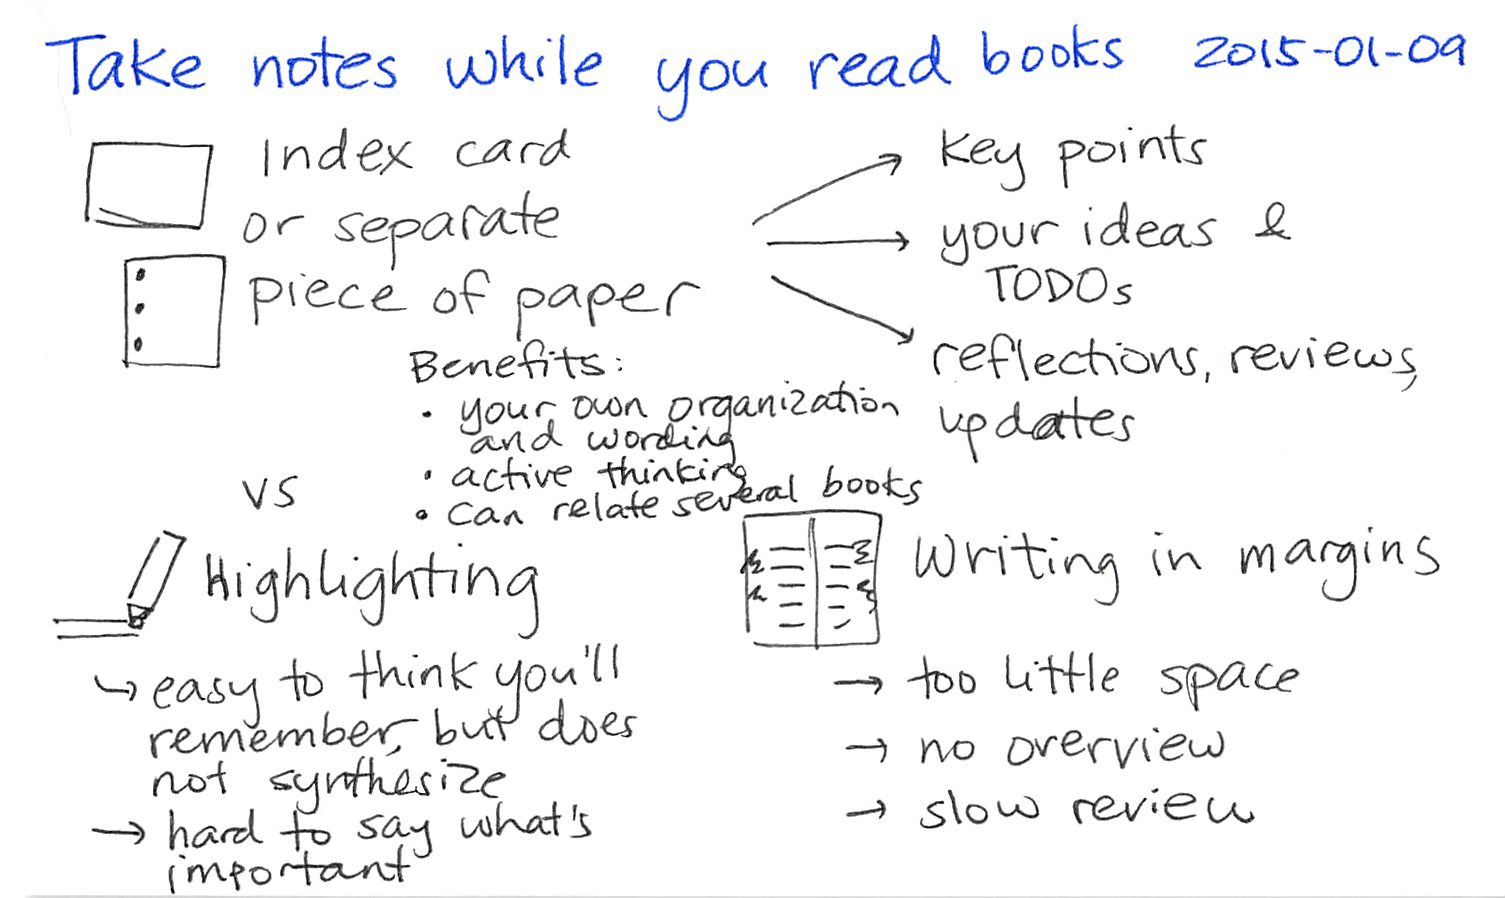 Take notes while you read books 2015-01-09
Index card
or separate
piece of paper
Key points
your ideas &
TODOs
reflections, reviews,
updates
Benefits:
• your own organization
and wording
• active thinking
• can relate several books
vs
Highlighting
↳ easy to think you'll
remember, but does
not synthesize
→ hard to say what's
important
Writing in margins
→ too little space
→ no overview
→ slow review